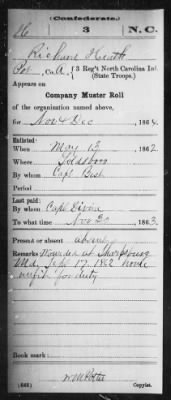 (Confederate.)
H 3 N.C.
Richard Heath
Pvt, Co. A, 3 Reg't North Carolina Inf.
(State Troops.)
Appears on
Company Muster Roll
of the organization named above,
for Nov & Dec, 1864.
Enlisted:
When May 13, 1862
Where Goldsboro
By whom Capt
Period
Last paid:
By whom Capt
To what time Nov 30, 1863
Present or absent absent
Remarks: Wounded at Sharpsburg
Md. Sept 17, 1862
unfit for duty
Book mark:
(642) Copyist.